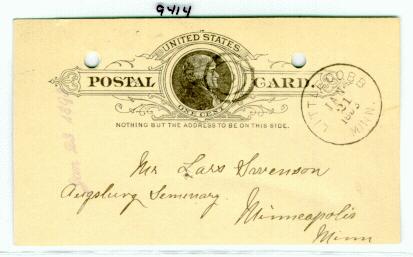 9414
UNITED STATES
POSTAL CARD.
ONE CENT
NOTHING BUT THE ADDRESS TO BE ON THIS SIDE.
LITTLE COBB
JAN
21
MINN.
Jan 23 189
Mr Lars Swenson
Augsburg Seminary.
Minneapolis
Minn